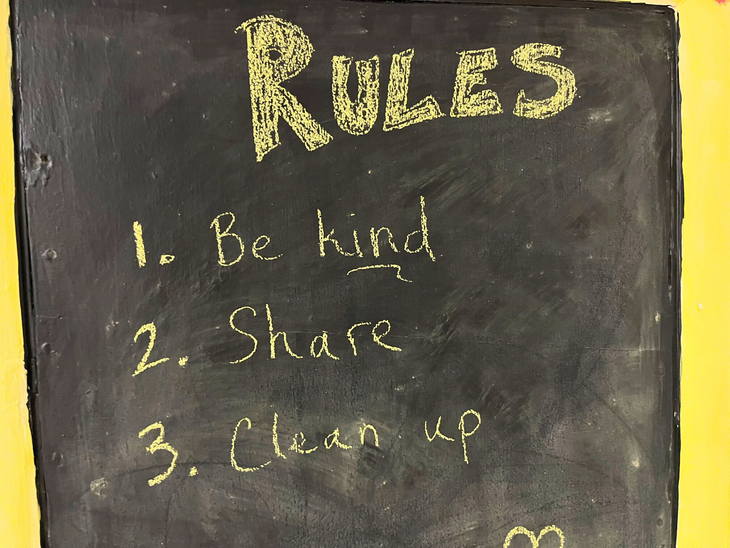 RULES
1. Be kind
2. Share
3. Clean up